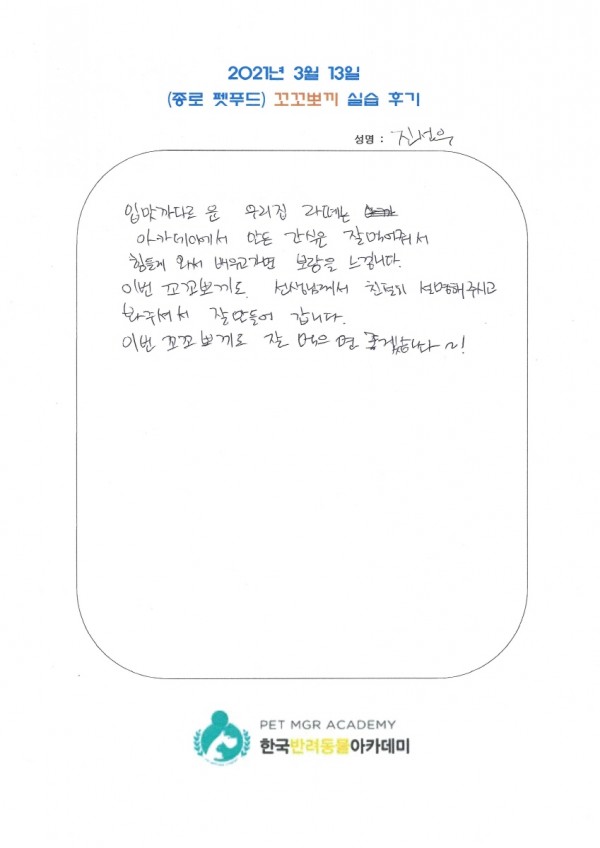 2021년 3월 13일
(종로 펫푸드) 꼬꼬뽀끼 실습 후기
성명 : 진선욱
입맛까다로운 우리집 라떼는
아카데미에서 만든 간식은 잘먹어줘서
힘들게 와서 배우고가면 보람을 느낍니다.
이번 꼬꼬뽀끼도 선생님께서 친절히 설명해주시고
봐주셔서 잘만들어 갑니다.
이번 꼬꼬뽀끼도 잘 먹으면 좋겠습니다~!
PET MGR ACADEMY
한국반려동물아카데미